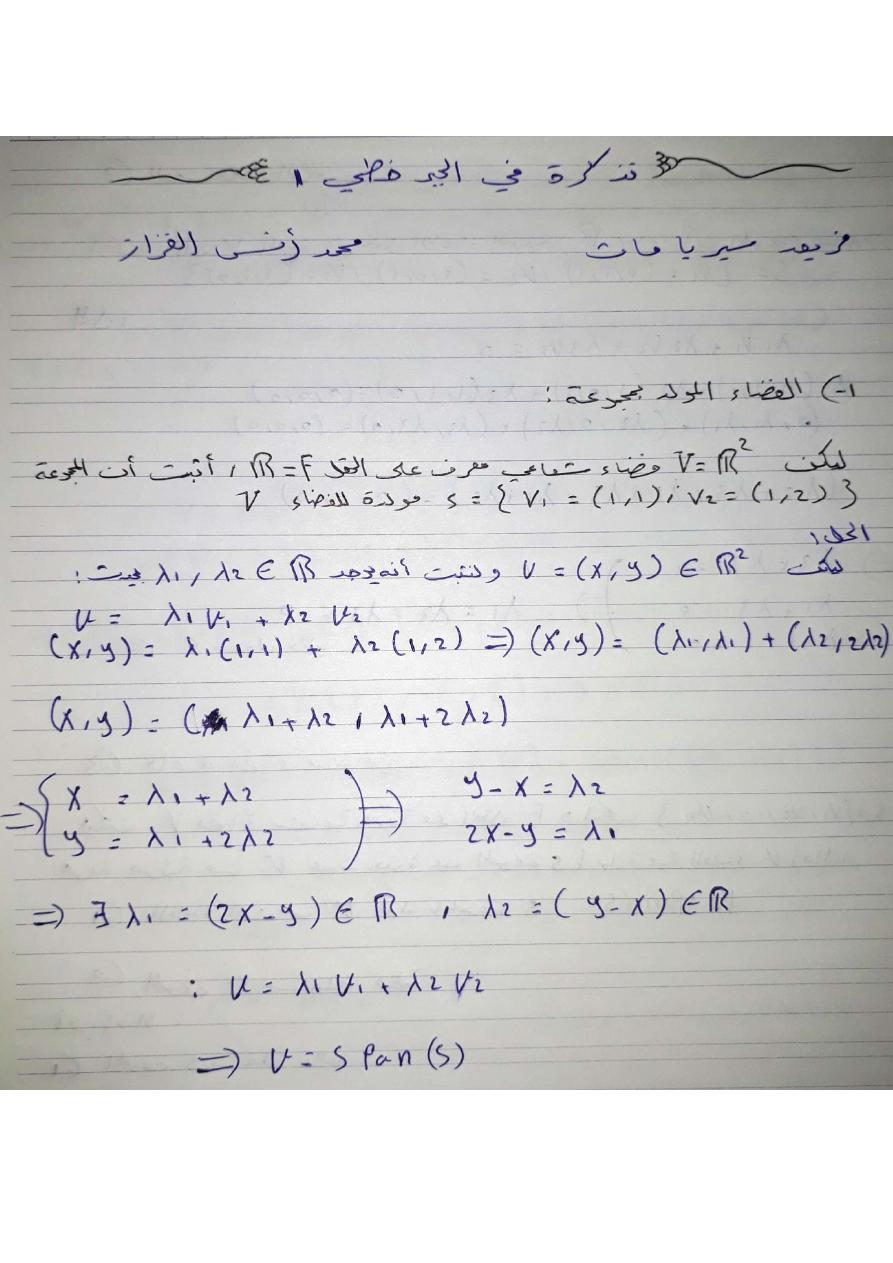 تذكرة في الجبر خطي 1
فريق سيريا مات محمد أنس القزاز
1-) الفضاء المولد بمجموعة :
ليكن V=ℝ² فضاء شعاعي معرف على الحقل ℝ=F ، أثبت أن المجموعة
S = { V₁ = (1,1) ، V₂ = (1,2) } مولدة للفضاء V
الحل :
ليكن v = (x,y) ∈ ℝ² ولنثبت أنه يوجد λ₁, λ₂ ∈ ℝ بحيث :
v = λ₁ v₁ + λ₂ v₂
(x,y) = λ₁(1,1) + λ₂(1,2) ⟹ (x,y) = (λ₁,λ₁) + (λ₂,2λ₂)
(x,y) = (λ₁+λ₂ , λ₁+2λ₂)
⟹ { x = λ₁ + λ₂ ) ⟹ y-x = λ₂
y = λ₁ + 2λ₂ 2x-y = λ₁
⟹ ∃ λ₁ = (2x-y) ∈ ℝ , λ₂ = (y-x) ∈ ℝ
: v = λ₁ v₁ + λ₂ v₂
⟹ V = span(S)